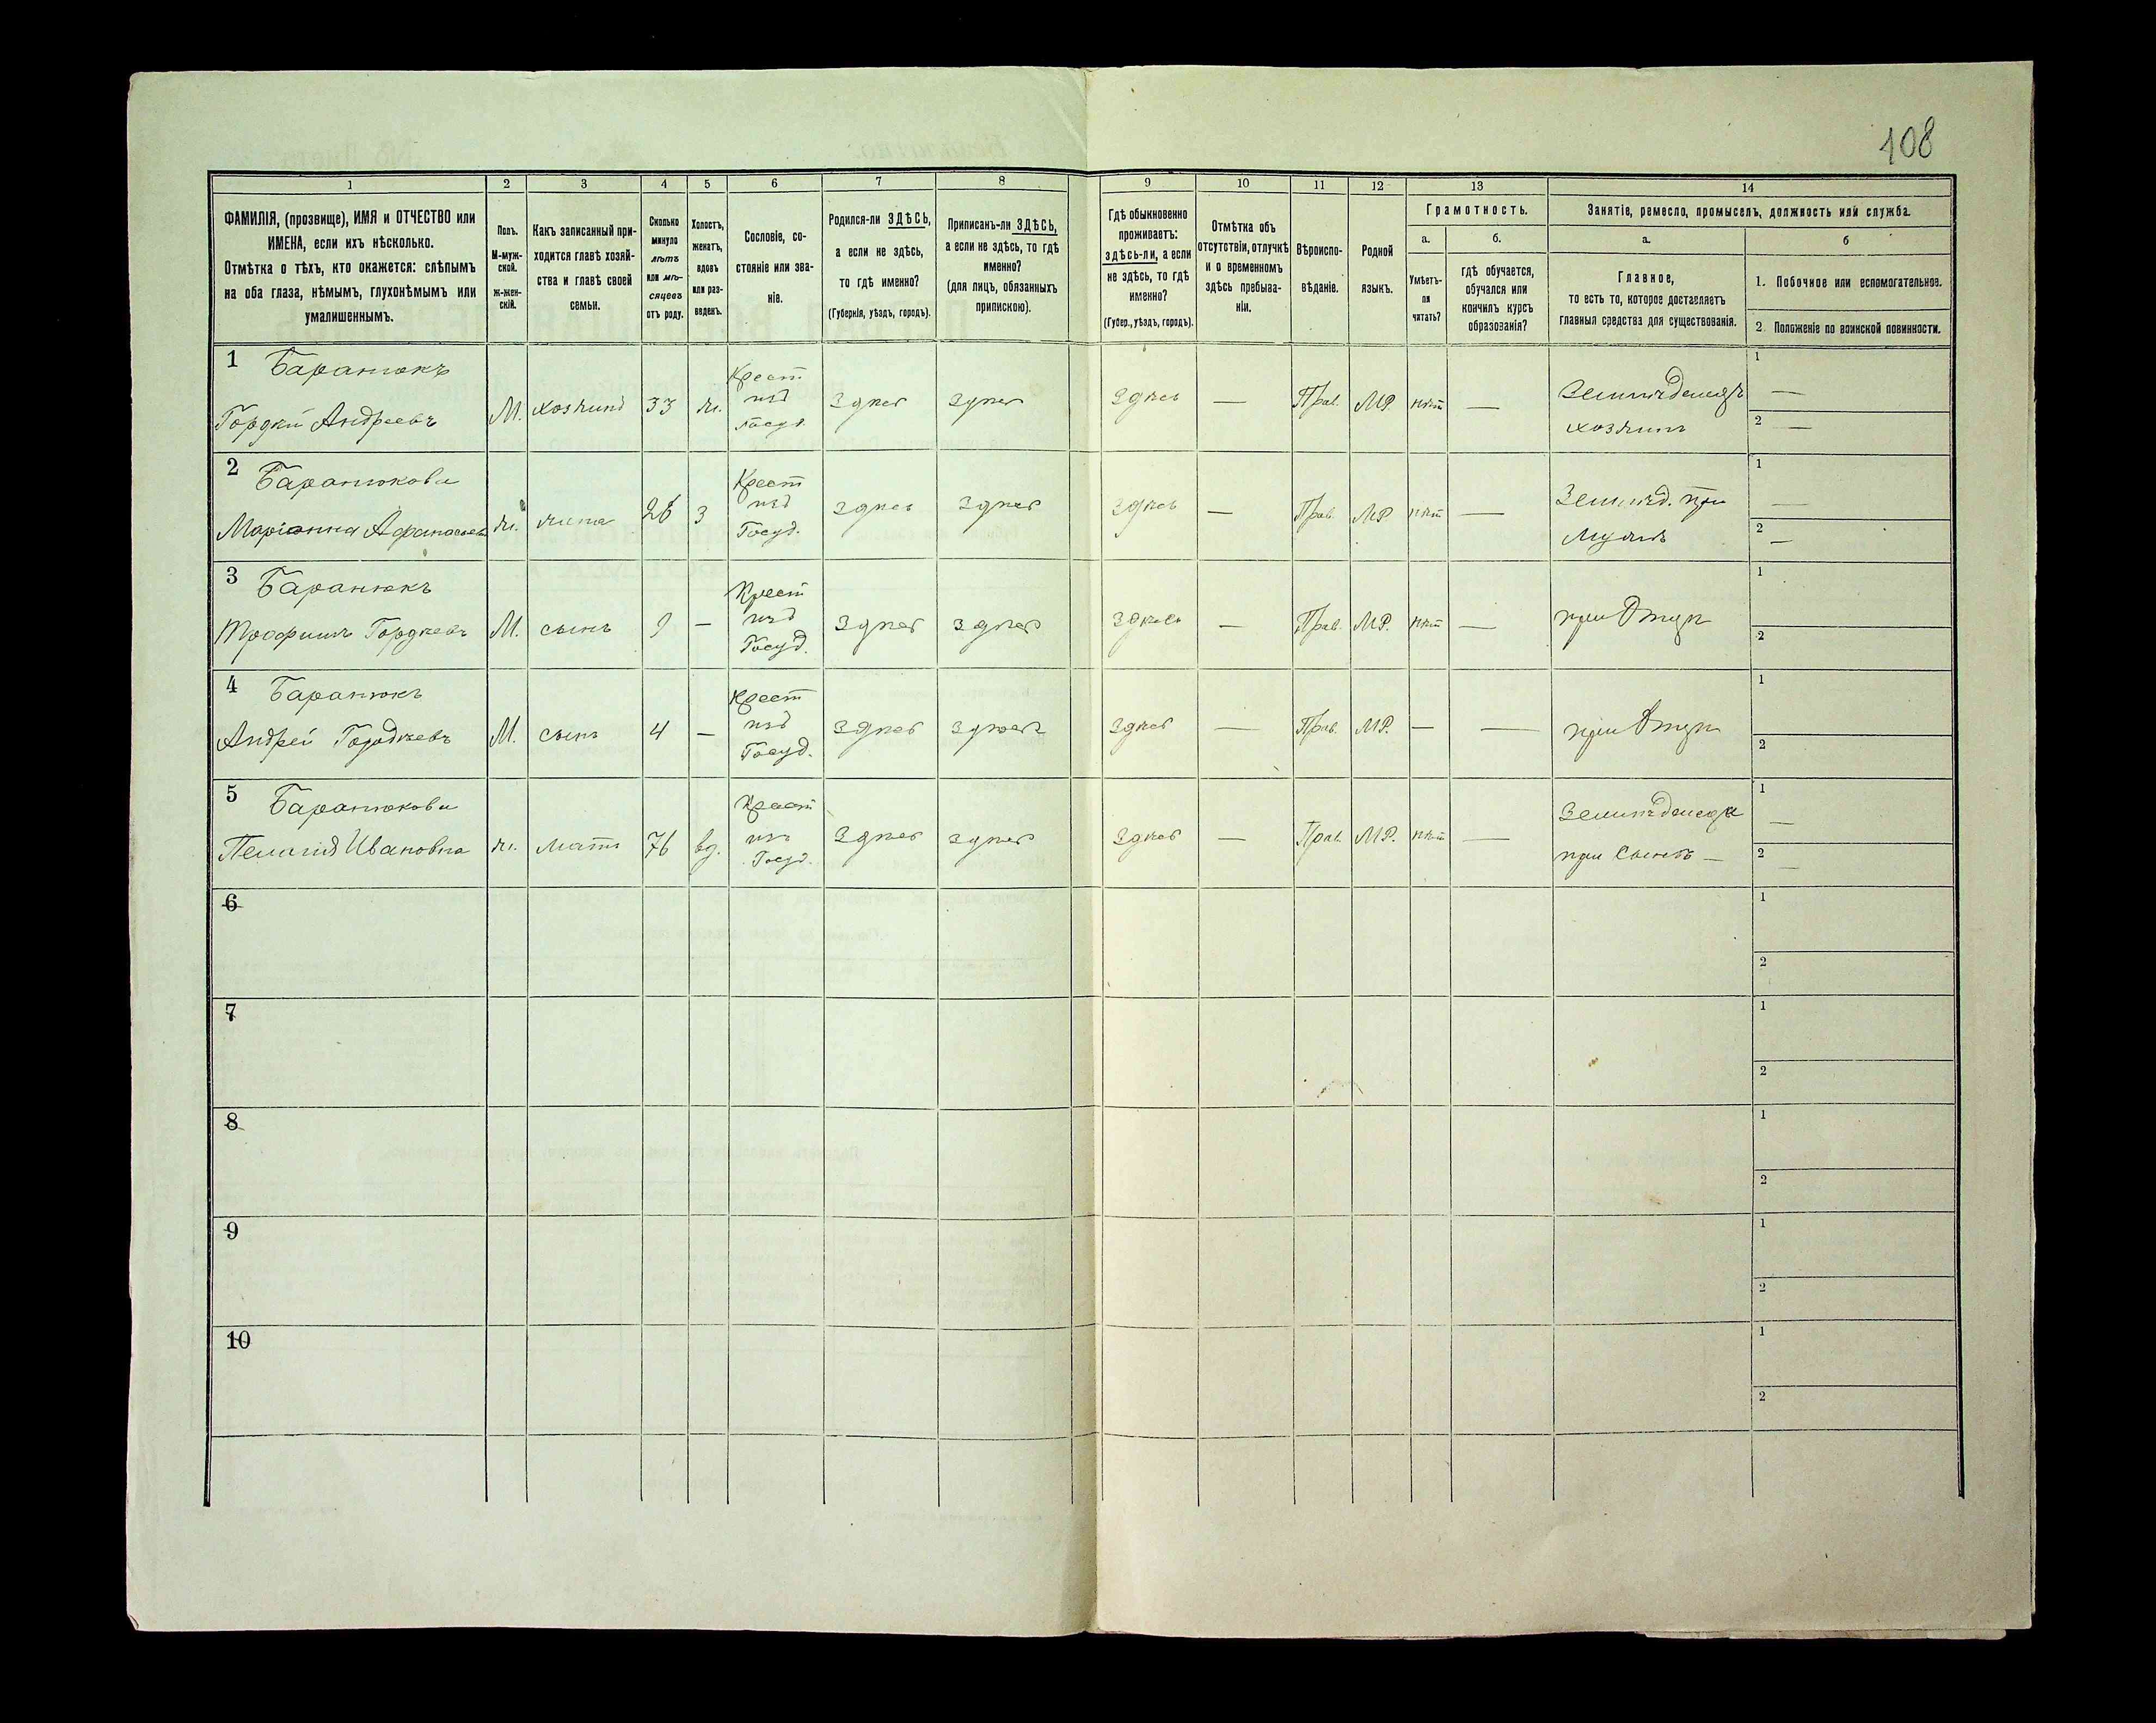 108
1 2 3 4 5 6 7 8 9 10 11 12 13 14
ФАМИЛІЯ, (прозвище), ИМЯ и ОТЧЕСТВО или
ИМЕНА, если ихъ нѣсколько.
Отмѣтка о тѣхъ, кто окажется: слѣпымъ
на оба глаза, нѣмымъ, глухонѣмымъ или
умалишеннымъ.
Полъ.
М-муж-
ской.
ж-жен-
скій.
Какъ записанный при-
ходится главѣ хозяй-
ства и главѣ своей
семьи.
Сколько
минуло
лѣтъ
или мѣ-
сяцевъ
отъ роду.
Холостъ,
женатъ,
вдовъ
или раз-
веденъ.
Сословіе, со-
стояніе или зва-
ніе.
Родился-ли ЗДѢСЬ,
а если не здѣсь,
то гдѣ именно?
(Губернія, уѣздъ, городъ).
Приписанъ-ли ЗДѢСЬ,
а если не здѣсь, то гдѣ
именно?
(для лицъ, обязанныхъ
припискою).
Гдѣ обыкновенно
проживаетъ:
здѣсь-ли, а если
не здѣсь, то гдѣ
именно?
(Губер., уѣздъ, городъ).
Отмѣтка объ
отсутствіи, отлучкѣ
и о временномъ
здѣсь пребыва-
ніи.
Вѣроиспо-
вѣданіе.
Родной
языкъ.
Грамотность.
а.
Умѣетъ-
ли
читать?
б.
гдѣ обучается,
обучался или
кончилъ курсъ
образованія?
Занятіе, ремесло, промыселъ, должность или служба.
а.
Главное,
то есть то, которое доставляетъ
главныя средства для существованія.
б
1. Побочное или вспомогательное.
2. Положеніе по воинской повинности.
1 Баранюкъ
Гордѣй Андреевъ М. хозяинъ 33 ж. Крест изъ Госуд. Здѣсь Здѣсь Здѣсь — Прав. МР. нѣт — Земледелецъ хозяинъ 1 — 2 —
2 Баранюкова
Маріанна Афанасьев ж. жена 26 з Крест изъ Госуд. Здѣсь Здѣсь Здѣсь — Прав. МР нѣт Землѣд. при мужѣ 1 — 2 —
3 Баранюкъ
Трофимъ Гордѣевъ М. сынъ 9 — Крест изъ Госуд. Здѣсь Здѣсь Здѣсь — Прав. МР. нѣт — при Отцѣ 1 2
4 Баранюкъ
Андрей Гордѣевъ М. сынъ 4 — Крест изъ Госуд. Здѣсь Здѣсь Здѣсь — Прав. МР. — — при Отцѣ 1 2
5 Баранюкова
Пелагія Ивановна ж. мать 76 вд. Крест изъ Госуд. Здѣсь Здѣсь Здѣсь — Прав. МР. нѣт — при Сынѣ — 1 — 2 —
6 1 2
7 1 2
8 1 2
9 1 2
10 1 2